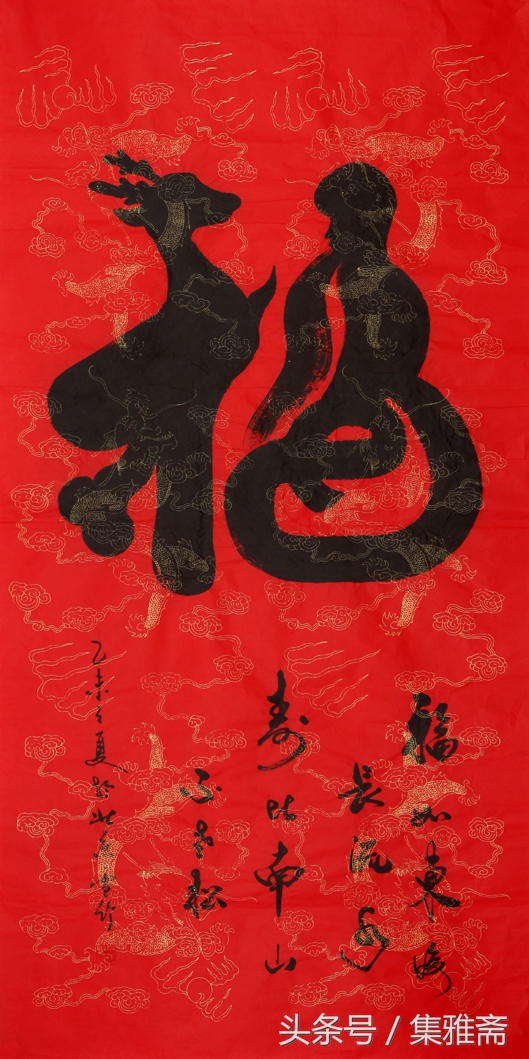 福
福如東海
長流水
寿比南山
不老松
乙未之夏於北京
头条号 / 集雅斋